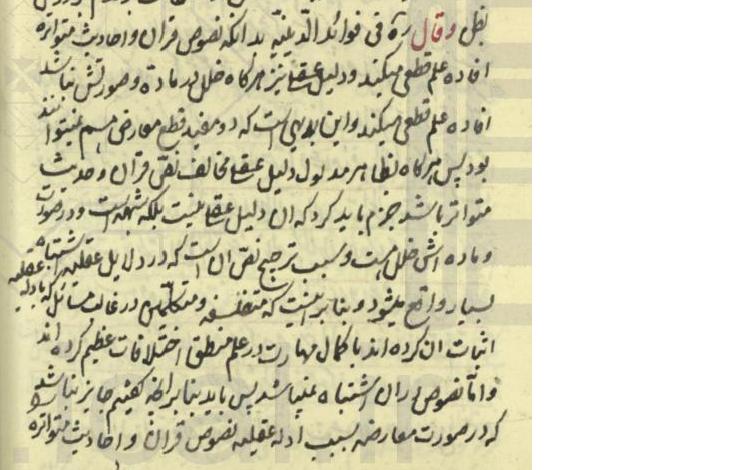 نظر و قال ره فی فوائد الدینیّه بدانکه نصوص قران و احادیث متواتره
افاده علم قطعی میکند و دلیل عقلی نیز هرکاه خلل در ماده و صورتش نباشد
افاده علم قطعی میکند و این بدیهی است که دو مفید قطع معارض هم نمیتوانند
بود پس هرکاه بظاهر مدلول دلیل عقلی مخالف نص قران و حدیث
متواتر باشد جزم باید کرد که ان دلیل عقلی نیست بلکه شبهه است و در صورت
و ماده اش خلل هست و سبب ترجیح نص ان است که در دلایل عقلیه اشتباه
بسیار واقع میشود و بنابر اینست که متفلسفه و متکلمین در غالب مسائل که بادله عقلیه
اثبات ان کرده اند با کمال مهارت در علم منطق اختلافات عظیم کرده اند
و امّا نصوص در ان اشتباه نمیباشد پس باید بنابر انچه کفتیم جایز نباشد
که در صورت معارضه بسبب ادله عقلیه نصوص قران و احادیث متواتره را